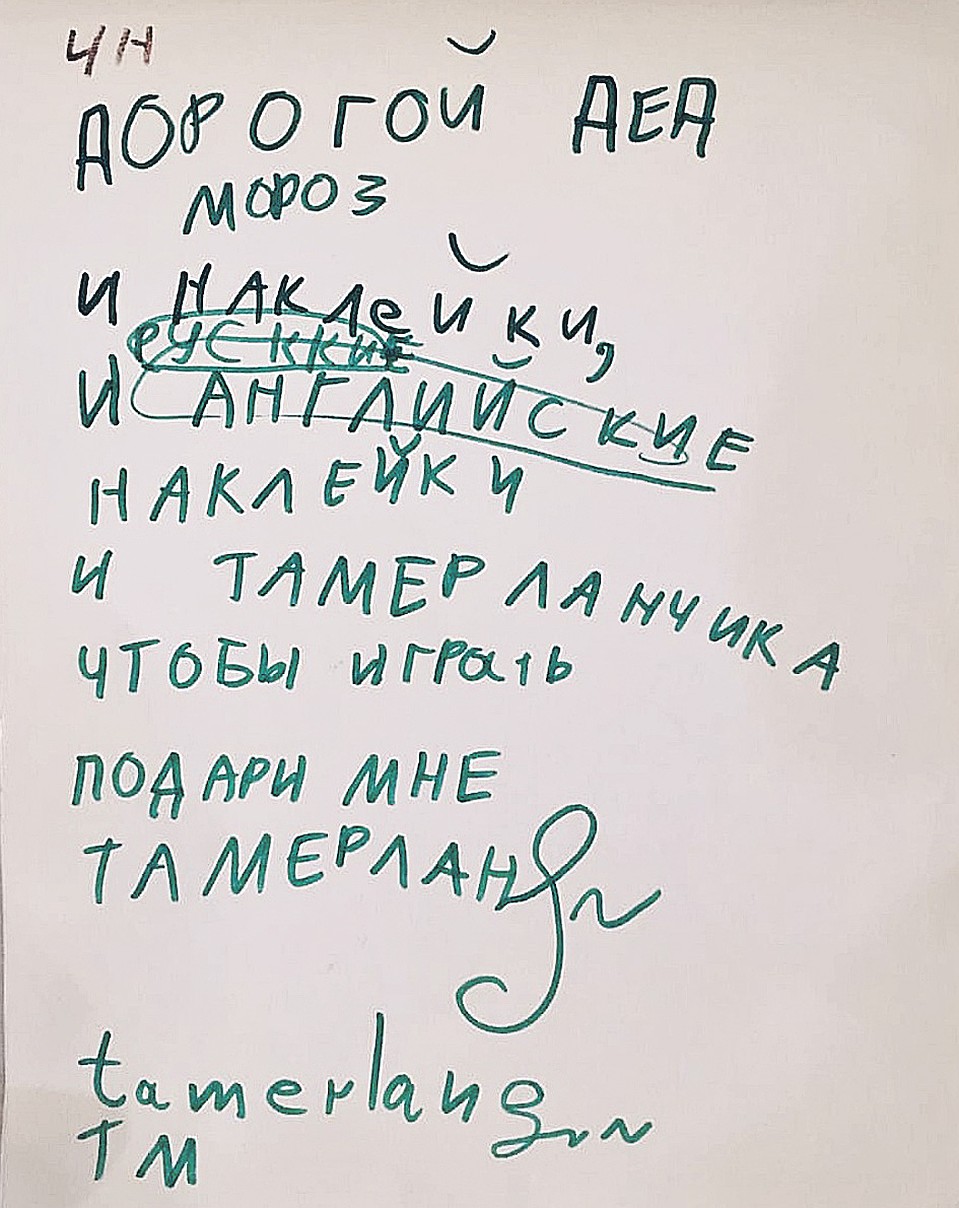 ЧН
ДОРОГОЙ ДЕД
МОРОЗ
И НАКЛеЙКИ,
РУСККИЕ
И АНГЛИЙСКИЕ
НАКЛЕЙКИ
И ТАМЕРЛАНЧИКА
ЧТОБЫ ИГРаТЬ
ПОДАРИ МНЕ
ТАМЕРЛАН
tamerlan
ТМ